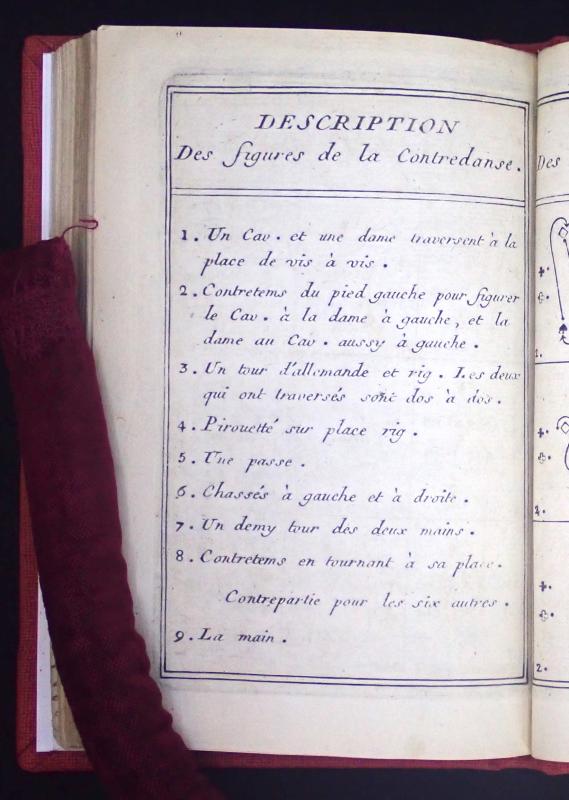 DESCRIPTION
Des figures de la Contredanse.
1. Un Cav. et une dame traversent à la
place de vis à vis.
2. Contretems du pied gauche pour figurer
le Cav. à la dame à gauche, et la
dame au Cav. aussy à gauche.
3. Un tour d'allemande et rig. Les deux
qui ont traversés sont dos à dos.
4. Pirouetté sur place rig.
5. Une passe.
6. Chassés à gauche et à droite.
7. Un demy tour des deux mains.
8. Contretems en tournant à sa place.
Contrepartie pour les six autres.
9. La main.
Des
4.
1.
4.
2.
4.
2.